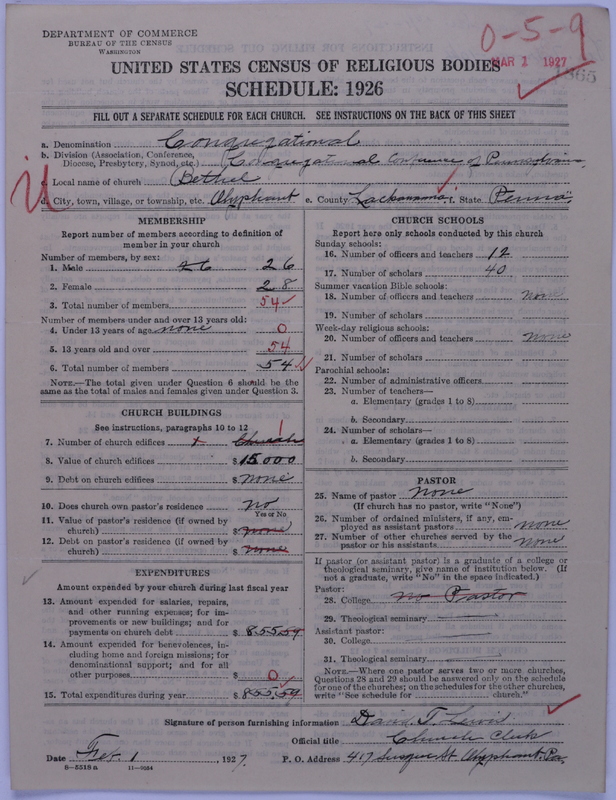 DEPARTMENT OF COMMERCE
BUREAU OF THE CENSUS
WASHINGTON
0-5-9
MAR 1 1927
UNITED STATES CENSUS OF RELIGIOUS BODIES
SCHEDULE: 1926
FILL OUT A SEPARATE SCHEDULE FOR EACH CHURCH. SEE INSTRUCTIONS ON THE BACK OF THIS SHEET
a. Denomination Congregational
b. Division (Association, Conference,
Diocese, Presbytery, Synod, etc.) Congregational Conference of Pennsylvania
c. Local name of church Bethel
d. City, town, village, or township, etc. Olyphant e. County Lackawanna f. State Penna
MEMBERSHIP
Report number of members according to definition of
member in your church
Number of members, by sex:
1. Male 26 26
2. Female 28
3. Total number of members 54
Number of members under and over 13 years old:
4. Under 13 years of age none 0
5. 13 years old and over 54
6. Total number of members 54
NOTE.—The total given under Question 6 should be the
same as the total of males and females given under Question 3.
CHURCH BUILDINGS
See instructions, paragraphs 10 to 12
7. Number of church edifices 1 Church
8. Value of church edifices $ 15000
9. Debt on church edifices $ None
10. Does church own pastor's residence no
Yes or No
11. Value of pastor's residence (if owned by
church) $ none
12. Debt on pastor's residence (if owned by
church) $ none
EXPENDITURES
Amount expended by your church during last fiscal year
13. Amount expended for salaries, repairs,
and other running expenses; for im-
provements or new buildings; and for
payments on church debt $ 855.59
14. Amount expended for benevolences, in-
cluding home and foreign missions; for
denominational support; and for all
other purposes $ 0
15. Total expenditures during year $ 855.59
CHURCH SCHOOLS
Report here only schools conducted by this church
Sunday schools:
16. Number of officers and teachers 12
17. Number of scholars 40
Summer vacation Bible schools:
18. Number of officers and teachers None
19. Number of scholars
Week-day religious schools:
20. Number of officers and teachers None
21. Number of scholars
Parochial schools:
22. Number of administrative officers
23. Number of teachers—
a. Elementary (grades 1 to 8)
b. Secondary
24. Number of scholars—
a. Elementary (grades 1 to 8)
b. Secondary
PASTOR
25. Name of pastor None
(If church has no pastor, write "None")
26. Number of ordained ministers, if any, em-
ployed as assistant pastors none
27. Number of other churches served by the
pastor or his assistants None
If pastor (or assistant pastor) is a graduate of a college or
theological seminary, give name of institution below. (If
not a graduate, write "No" in the space indicated.)
Pastor:
28. College no Pastor
29. Theological seminary
Assistant pastor:
30. College
31. Theological seminary
NOTE.—Where one pastor serves two or more churches,
Questions 28 and 29 should be answered only on the schedule
for one of the churches; on the schedules for the other churches,
write "See schedule for church."
Signature of person furnishing information David T. Lewis
Official title Church Clerk
Date Feb. 1 1927. P. O. Address 417 Susque St Olyphant. Pa.
8-5518 a 11-9284